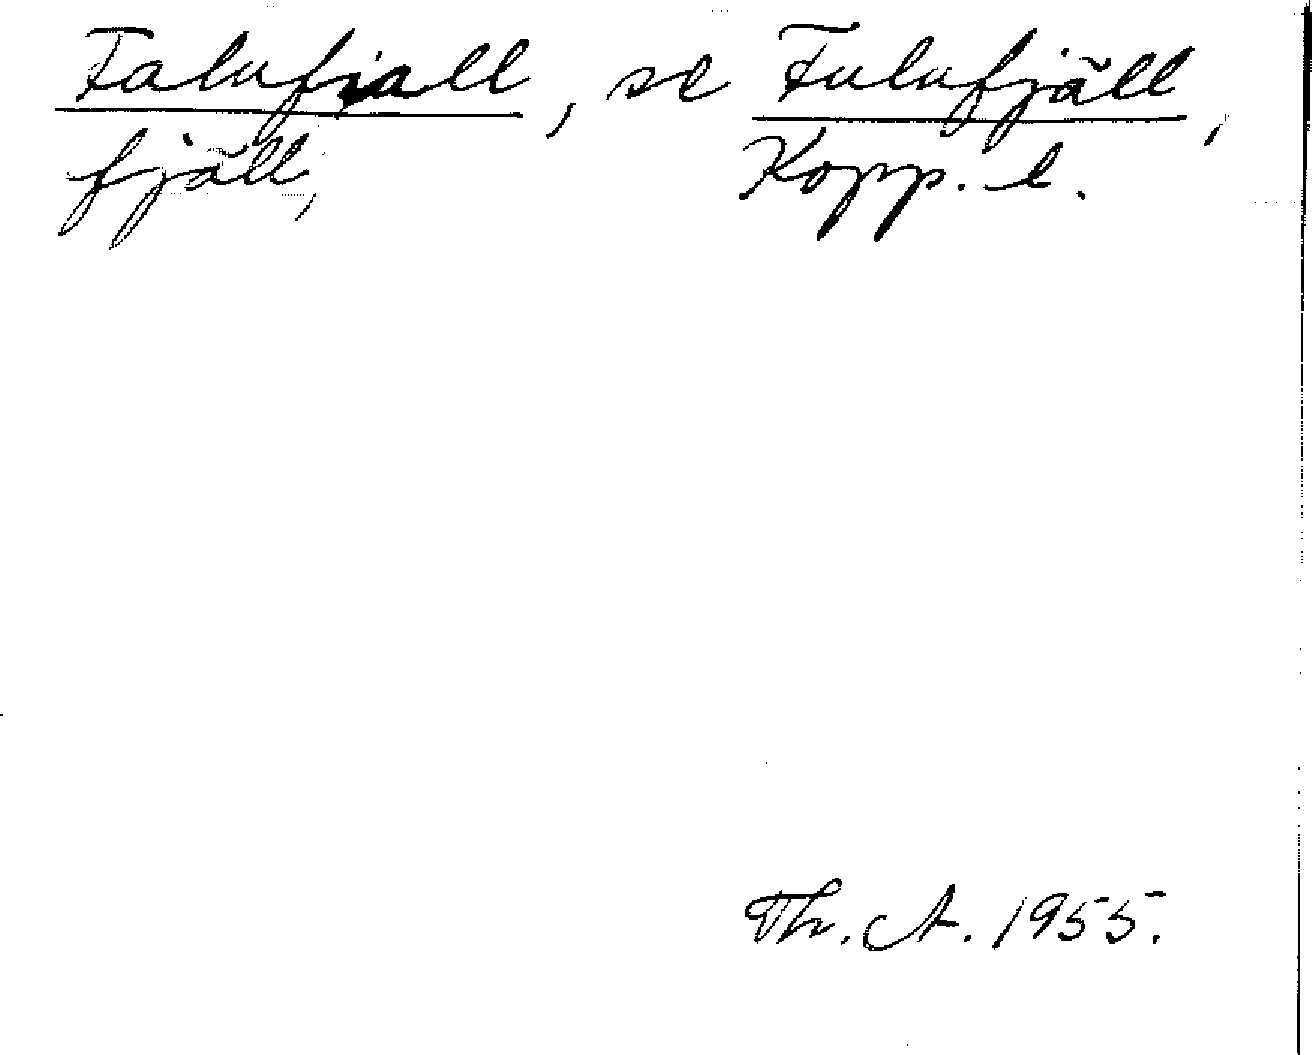 Falufiall, se Fulufjäll,
fjäll, Kopp. l.
Th. A. 1955.